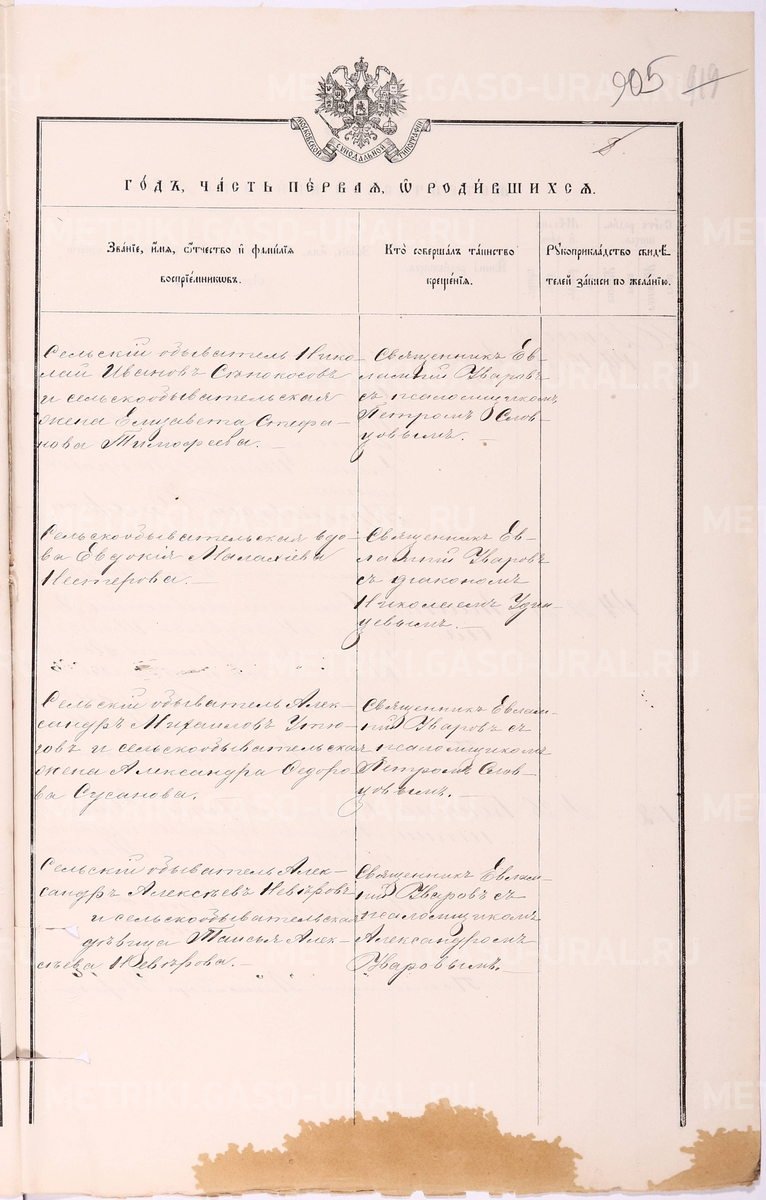 905 919
МОСКОВСКОЙ СѴНОДАЛЬНОЙ ТИПОГРАФІИ
ГО́ДЪ, ЧА́СТЬ ПЕ́РВАЯ, Ѡ҆ РОДИ́ВШИХСѦ.
Зва́нїе, и҆́мѧ, ѻ҆́тчество и҆ фами́лїѧ
воспрїе́мникѡвъ.
Кто̀ соверша́лъ та́инство
креще́нїѧ.
Рꙋкоприкла́дство свидѣ́-
телей за́писи по жела́нїю.
Сельскій обыватель Нико-
лай Ивановъ Сѣнокосовъ
и сельскообывательская
жена Елизавета Стефа-
нова Тимофеева.
Священникъ Ев-
лампій Уваровъ
съ псаломщикомъ
Петромъ Слов-
цовымъ.
Сельскообывательская вдо-
ва Евдокія Малахіева
Нестерова.
Священникъ Ев-
лампій Уваровъ
съ діакономъ
Николаемъ Удин-
цевымъ.
Сельскій обыватель Алек-
сандръ Михаиловъ Утю-
говъ и сельскообывательская
жена Александра Ѳедоро-
ва Сусанова.
Священникъ Евлам-
пій Уваровъ съ
псаломщикомъ
Петромъ Слов-
цовымъ.
Сельскій обыватель Алек-
сандръ Алексѣевъ Невѣровъ
и сельскообывательская
дѣвица Таисья Алек-
сѣева Невѣрова.
Священникъ Евлам-
пій Уваровъ съ
псаломщикомъ
Александромъ
Уваровымъ.
METRIKI.GASO-URAL.RU